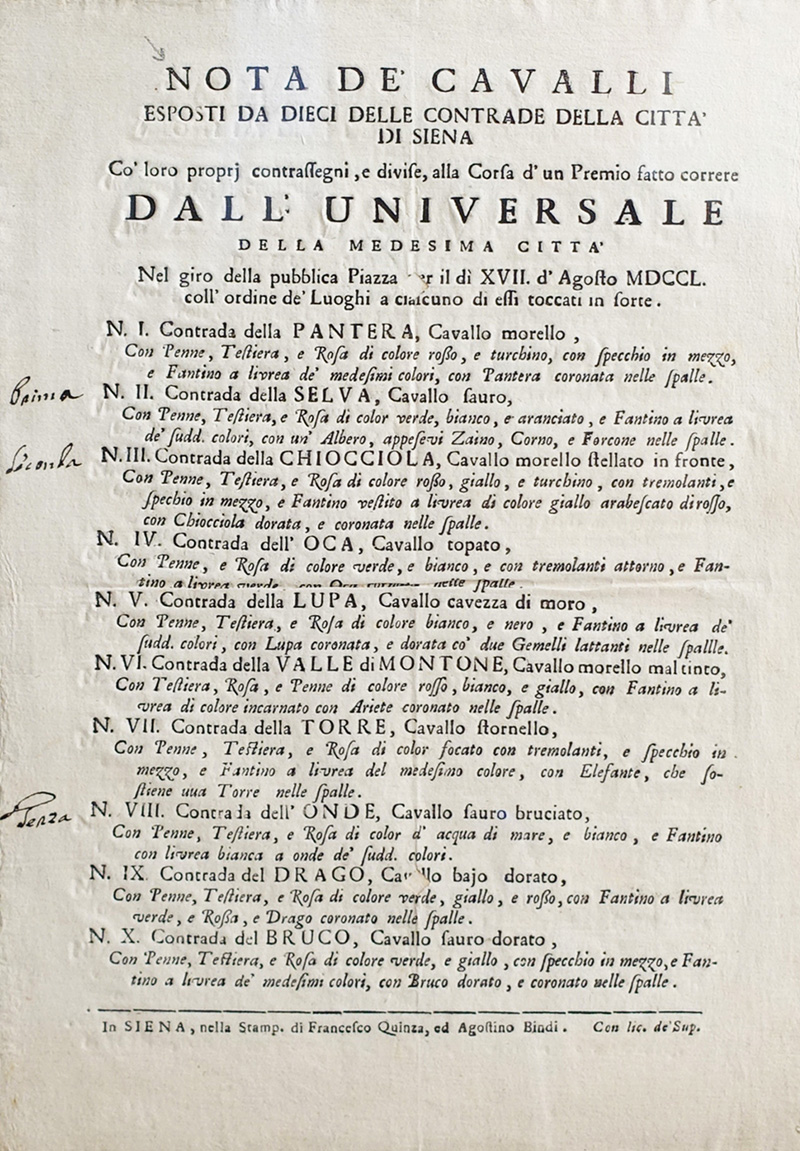 NOTA DE' CAVALLI
ESPOSTI DA DIECI DELLE CONTRADE DELLA CITTA'
DI SIENA
Co' loro proprj contraſſegni, e diviſe, alla Corſa d' un Premio fatto correre
DALL' UNIVERSALE
DELLA MEDESIMA CITTA'
Nel giro della pubblica Piazza per il dì XVII. d' Agoſto MDCCL.
coll' ordine de' Luoghi a ciaſcuno di eſſi toccati in ſorte.
N. I. Contrada della PANTERA, Cavallo morello,
Con Penne, Teſtiera, e Roſa di colore roßo, e turchino, con ſpecchio in mezzo,
e Fantino a livrea de' medeſimi colori, con Pantera coronata nelle ſpalle.
Prima N. II. Contrada della SELVA, Cavallo ſauro,
Con Penne, Teſtiera, e Roſa di color verde, bianco, e aranciato, e Fantino a livrea
de' ſudd. colori, con un' Albero, appeſevi Zaino, Corno, e Forcone nelle ſpalle.
Seconda N. III. Contrada della CHIOCCIOLA, Cavallo morello ſtellato in fronte,
Con Penne, Teſtiera, e Roſa di colore roßo, giallo, e turchino, con tremolanti, e
ſpechio in mezzo, e Fantino veſtito a livrea di colore giallo arabeſcato di roſſo,
con Chiocciola dorata, e coronata nelle ſpalle.
N. IV. Contrada dell' OCA, Cavallo topato,
Con Penne, e Roſa di colore verde, e bianco, e con tremolanti attorno, e Fan-
tino a livrea verde, con Oca nelle ſpalle.
N. V. Contrada della LUPA, Cavallo cavezza di moro,
Con Penne, Teſtiera, e Roſa di colore bianco, e nero, e Fantino a livrea de'
ſudd. colori, con Lupa coronata, e dorata co' due Gemelli lattanti nelle ſpallle.
N. VI. Contrada della VALLE di MONTONE, Cavallo morello mal tinto,
Con Teſtiera, Roſa, e Penne di colore roſſo, bianco, e giallo, con Fantino a li-
vrea di colore incarnato con Ariete coronato nelle ſpalle.
N. VII. Contrada della TORRE, Cavallo ſtornello,
Con Penne, Teſtiera, e Roſa di color focato con tremolanti, e ſpecchio in
mezzo, e Fantino a livrea del medeſimo colore, con Elefante, che ſo-
ſtiene uua Torre nelle ſpalle.
Terza N. VIII. Contrada dell' ONDE, Cavallo ſauro bruciato,
Con Penne, Teſtiera, e Roſa di color d' acqua di mare, e bianco, e Fantino
con livrea bianca a onde de' ſudd. colori.
N. IX. Contrada del DRAGO, Cavallo bajo dorato,
Con Penne, Teſtiera, e Roſa di colore verde, giallo, e roßo, con Fantino a livrea
verde, e Roßa, e Drago coronato nelle ſpalle.
N. X. Contrada del BRUCO, Cavallo ſauro dorato,
Con Penne, Teſtiera, e Roſa di colore verde, e giallo, con ſpecchio in mezzo, e Fan-
tino a livrea de' medeſimi colori, con Bruco dorato, e coronato nelle ſpalle.
In SIENA, nella Stamp. di Franceſco Quinza, ed Agoſtino Bindi. Con lic. de' Sup.